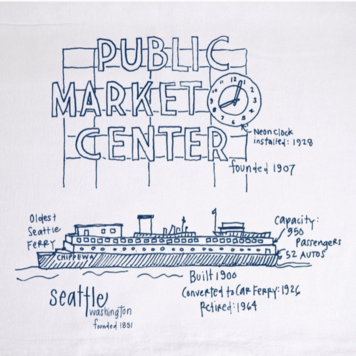 PUBLIC
MARKET
CENTER
12
1
2
3
4
5
6
7
8
9
10
11
Neon clock
installed: 1928
founded 1907
Oldest
Seattle
FERRY
CHIPPEWA
Capacity:
950
Passengers
52 AUTOS
Built 1900
Converted to Car Ferry: 1926
Retired: 1964
seattle
washington
founded 1851